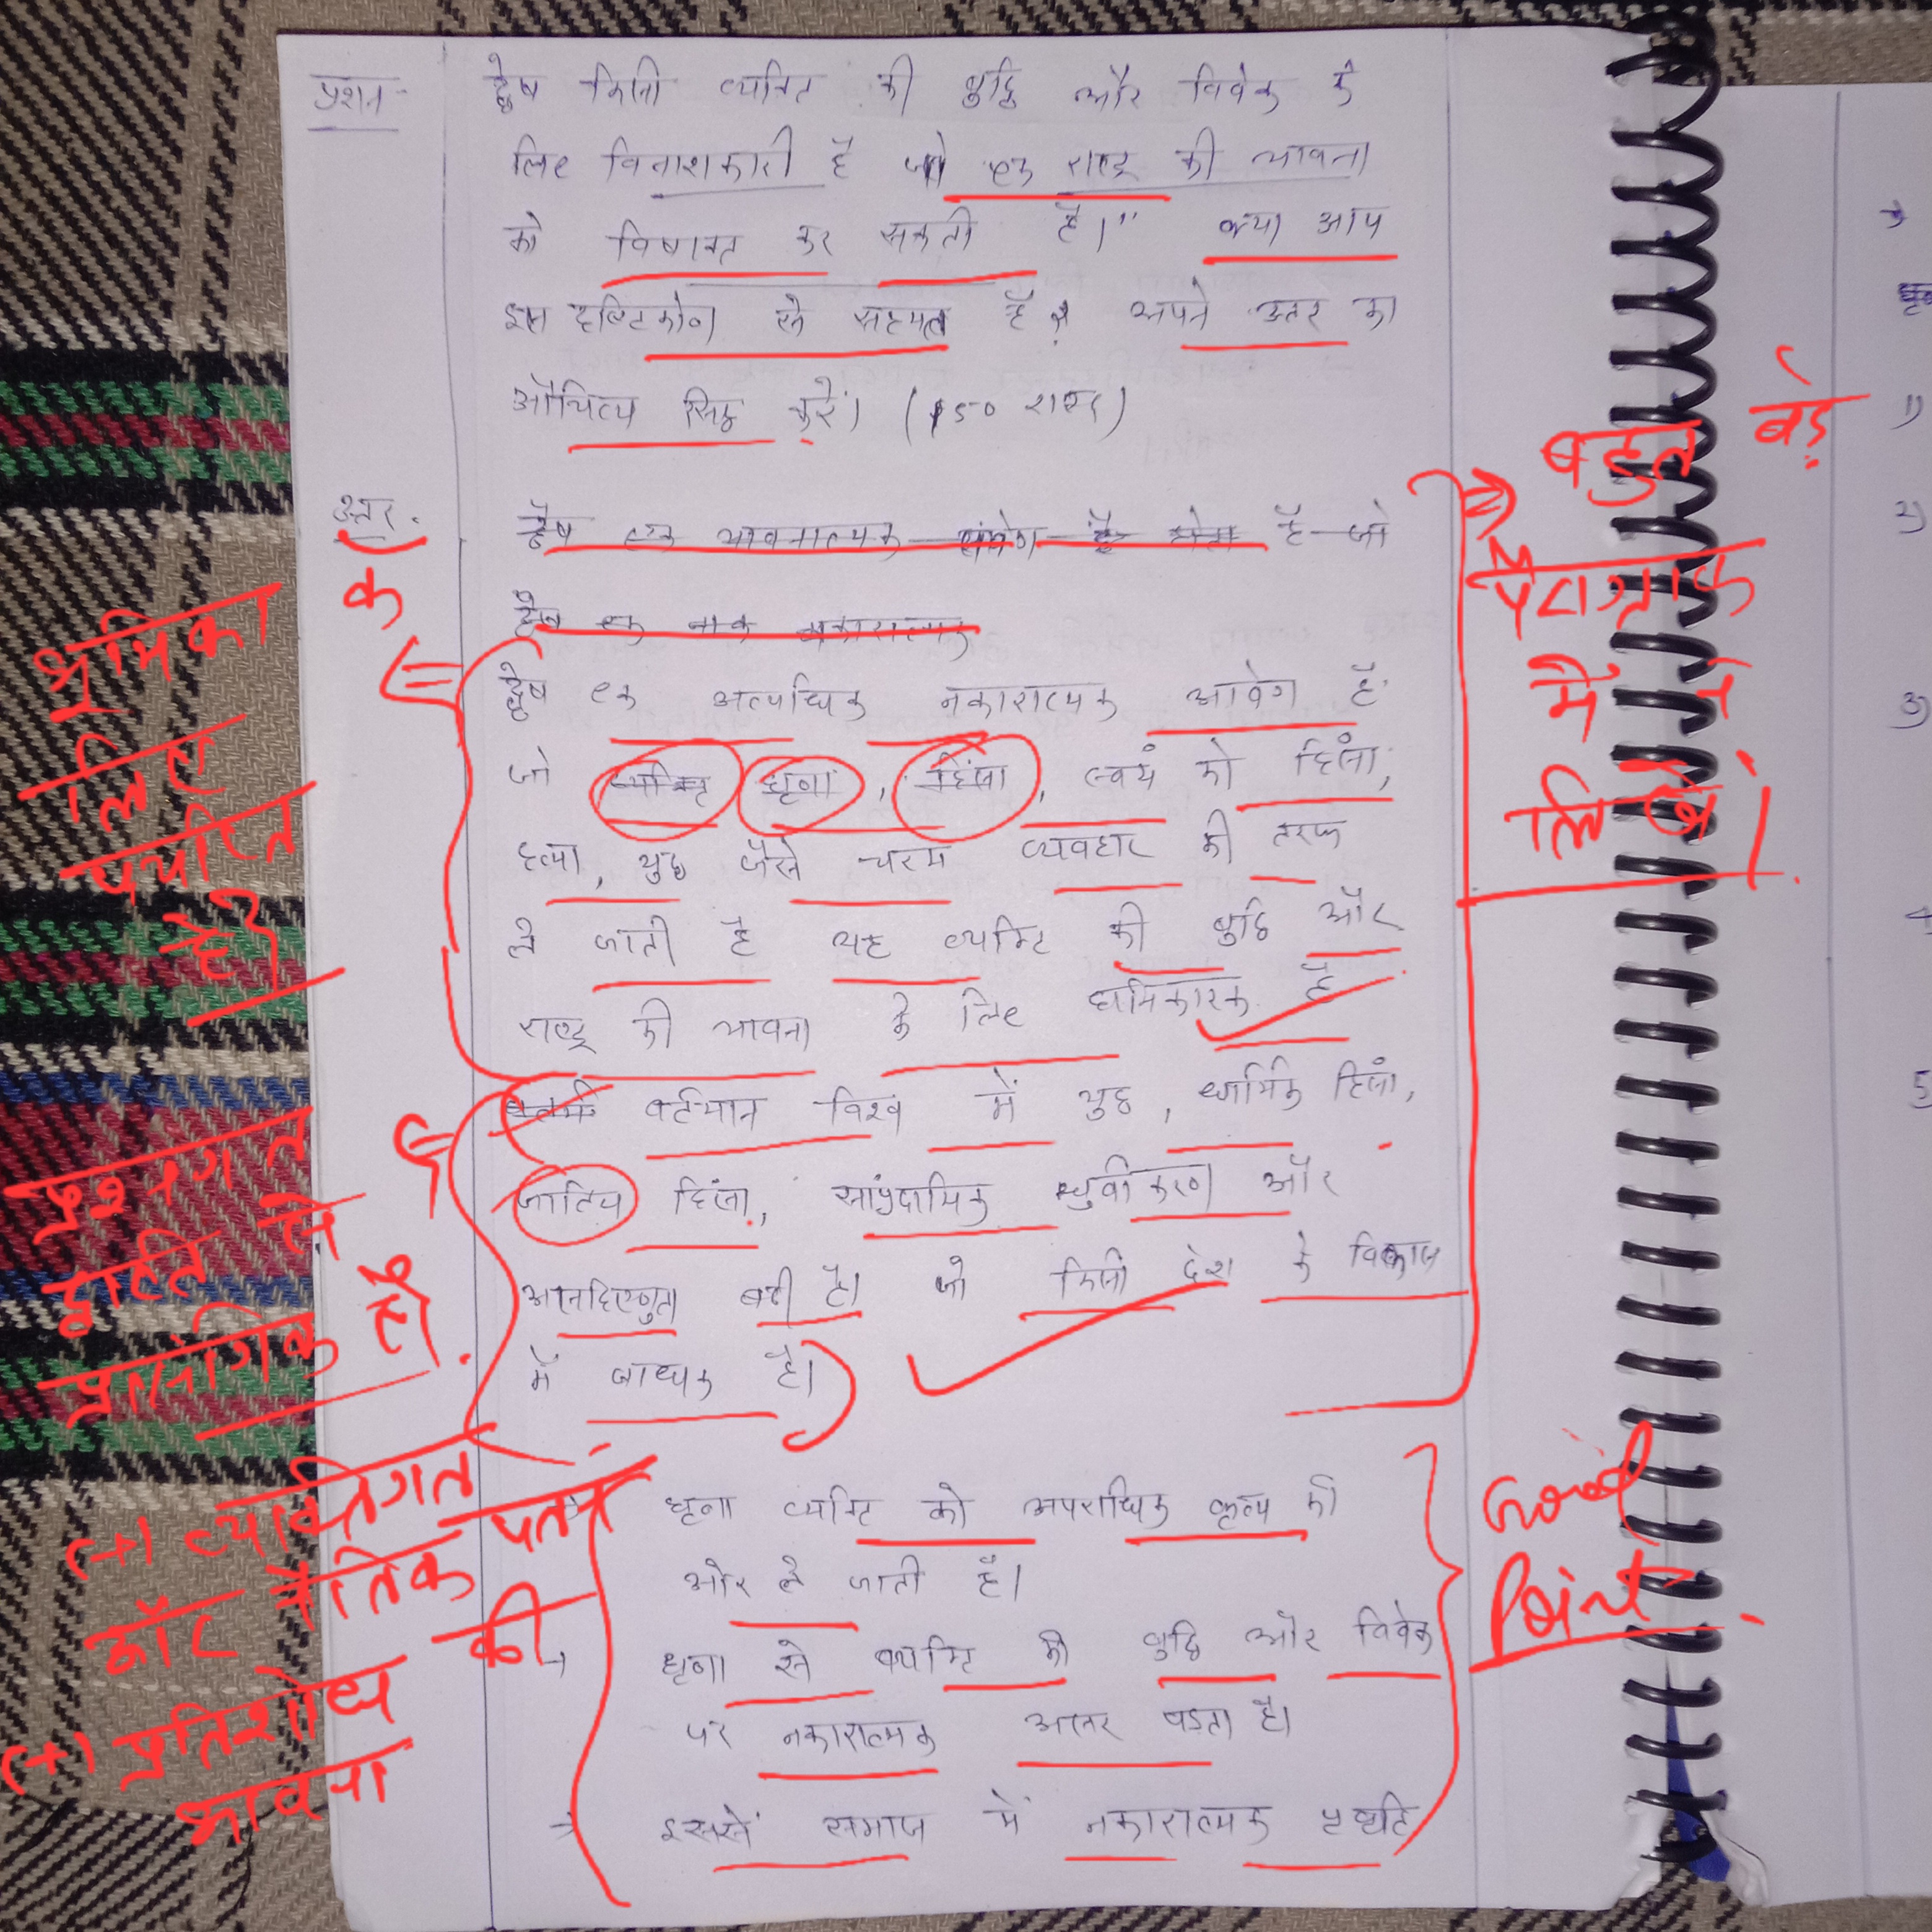 प्रश्न- द्वेष किसी व्यक्ति की बुद्धि और विवेक के
लिए विनाशकारी है जो एक राष्ट्र की भावना
को विषाक्त कर सकती है।" क्या आप
इस दृष्टिकोण से सहमत हैं? अपने उत्तर का
औचित्य सिद्ध करें। (150 शब्द)
उत्तर.
द्वेष एक भावनात्मक संवेग है है जो
द्वेष एक नाक नकारात्मक
द्वेष एक अत्यधिक नकारात्मक आवेग है
जो व्यक्ति घृणा, हिंसा, स्वयं को हिंसा,
हत्या, युद्ध जैसे चरम व्यवहार की तरफ
ले जाती है यह व्यक्ति की बुद्धि और
राष्ट्र की भावना के लिए हानिकारक है
वर्तमान विश्व में युद्ध, धार्मिक हिंसा,
जातिय हिंसा, सांप्रदायिक ध्रुवीकरण और
असहिष्णुता बढ़ी है। जो किसी देश के विकास
में बाधक है।
घृणा व्यक्ति को अपराधिक कृत्य की
ओर ले जाती है।
→ घृणा से व्यक्ति की बुद्धि और विवेक
पर नकारात्मक असर पड़ता है।
→ इससे समाज में नकारात्मक प्रवृति
भूमिका के
लिए
पर्याप्त
है?
प्रश्नगत
दृष्टि से
प्रासंगिक है।
(+) व्यक्तिगत
और नैतिक पतन
(+) प्रतिशोध की
भावना
बहुत बड़े
पैराग्राफ
में न
लिखें।
Good
Point
1)
2)
3)
4
5